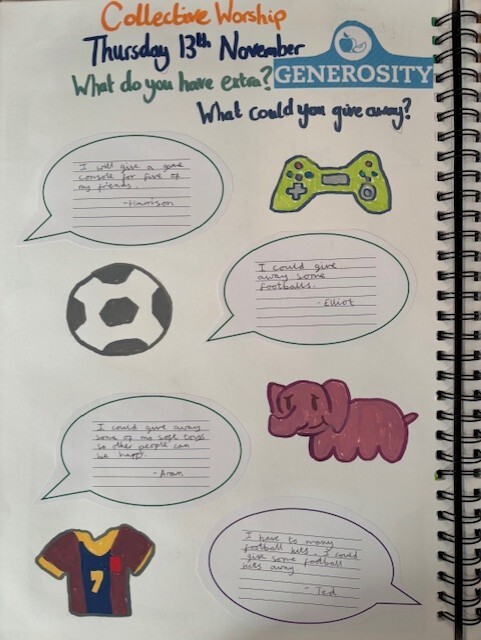 Collective Worship
Thursday 13th November
What do you have extra?
GENEROSITY
What could you give away?
I will give a game
console for five of
my friends.
-Harrison
I could give
away some
footballs.
-Elliot
I could give away
some of mo soft toys
so other people can
be happy.
-Aran
7
I have to many
football kits. I could
give some football
kits away
- Ted